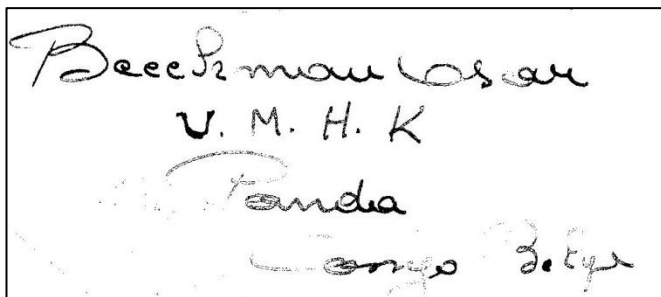 Beeckman Cosar
U. M. H. K
Panda
Congo Belge